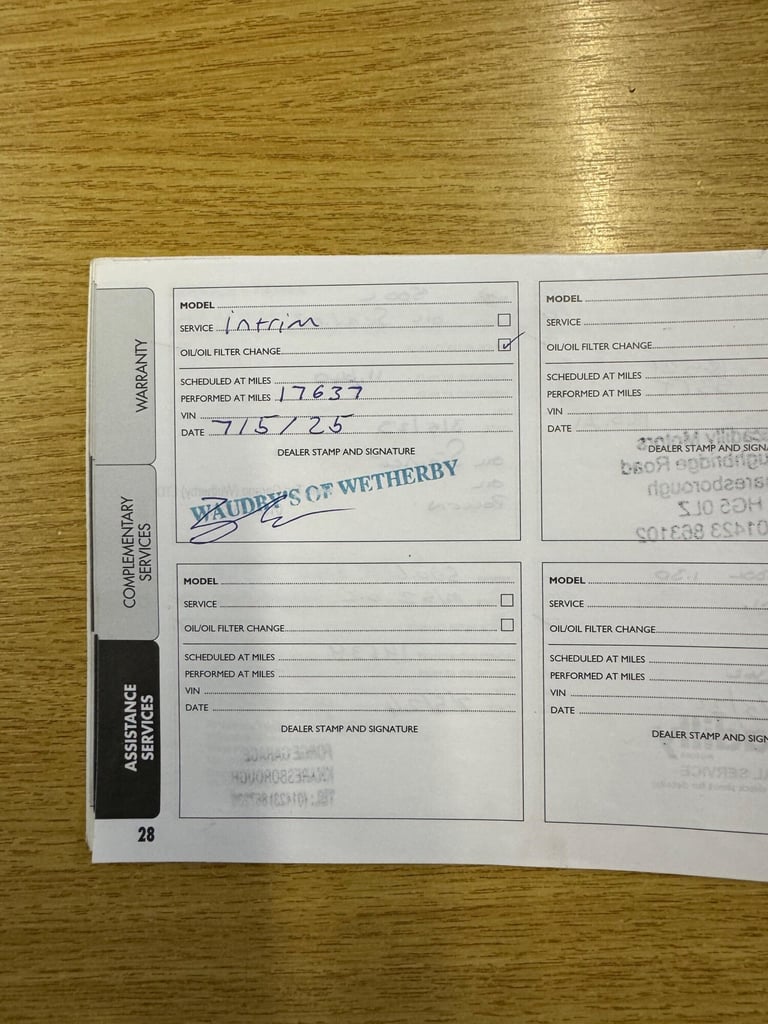 WARRANTY
COMPLEMENTARY
SERVICES
ASSISTANCE
SERVICES
28
MODEL
SERVICE intrim
OIL/OIL FILTER CHANGE
SCHEDULED AT MILES
PERFORMED AT MILES 17637
VIN
DATE 7/5/25
DEALER STAMP AND SIGNATURE
WAUDBY'S OF WETHERBY
MODEL
SERVICE
OIL/OIL FILTER CHANGE
SCHEDULED AT MILES
PERFORMED AT MILES
VIN
DATE
DEALER STAMP AND SIGN
MODEL
SERVICE
OIL/OIL FILTER CHANGE
SCHEDULED AT MILES
PERFORMED AT MILES
VIN
DATE
DEALER STAMP AND SIGNATURE
MODEL
SERVICE
OIL/OIL FILTER CHANGE
SCHEDULED AT MILES
PERFORMED AT MILES
VIN
DATE
DEALER STAMP AND SIGN